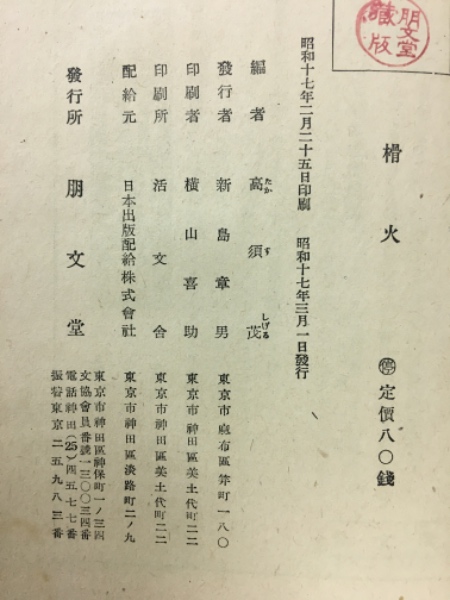 朋文堂
藏版
榾火
㊡定價八〇錢
昭和十七年二月二十五日印刷 昭和十七年三月一日發行
編者 高須茂
たか す しげる
發行者 新島章男 東京市麻布區笄町一八〇
印刷者 橫山喜助 東京市神田區美土代町二二
印刷所 活文舍 東京市神田區美土代町二二
配給元 日本出版配給株式會社 東京市神田區淡路町二ノ九
發行所 朋文堂
東京市神田區神保町一ノ三四
文協會員番號一三〇〇三四番
電話神田(25)四五七七番
振替東京二五九八三番